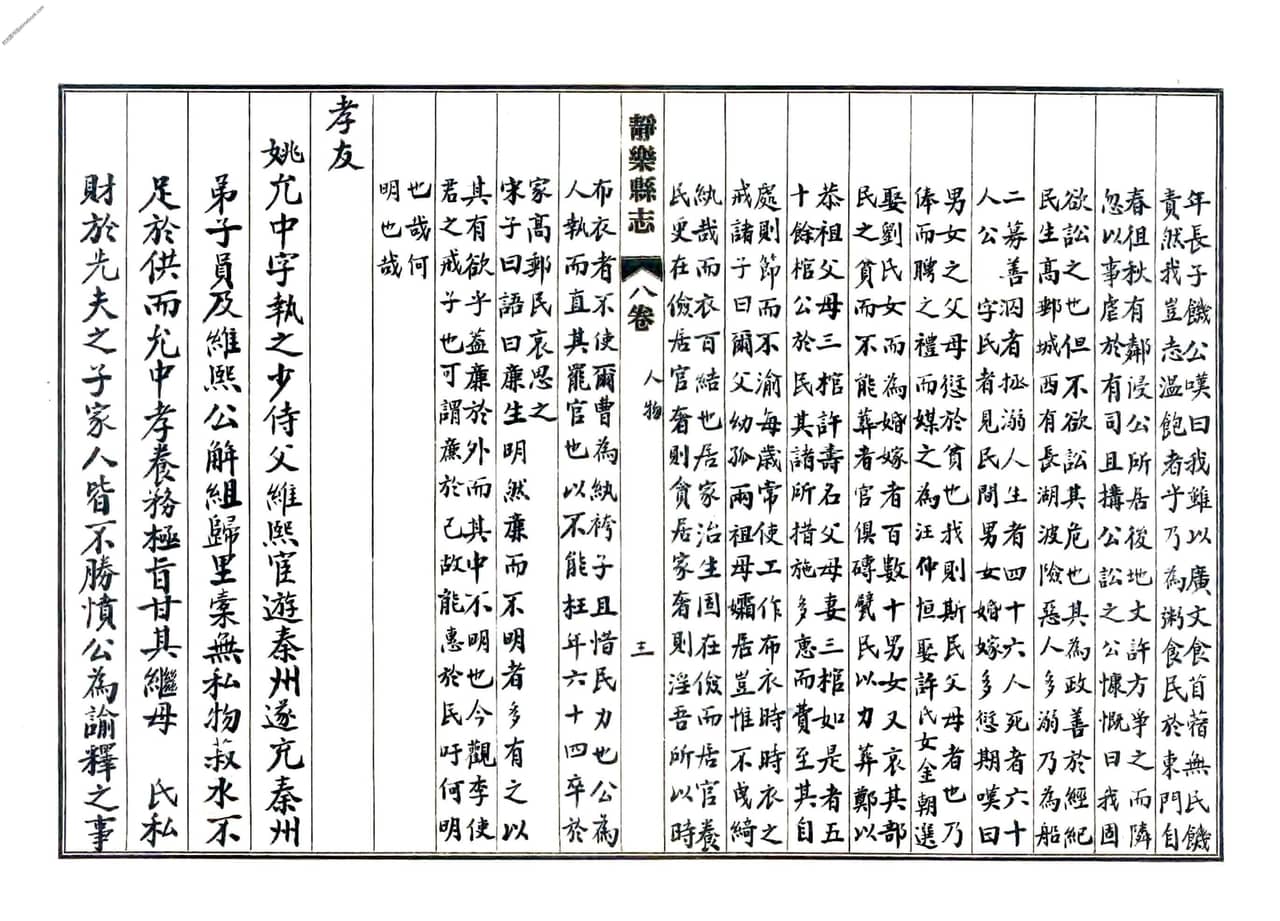 年長子饑公嘆曰我雖以廣文食苜蓿無民饑
責然我豈志溫飽者乎乃為粥食民於東門自
春徂秋有鄰浸公所居後地丈許方爭之而隣
忽以事虐於有司且搆公訟之公慷慨曰我固
欲訟之也但不欲訟其危也其為政善於經紀
民生高郵城西有長湖波險惡人多溺乃為船
二募善泅者拯溺人生者四十六人死者六十
人公　字民者見民間男女婚嫁多愆期嘆曰
男女之父母愆於貧也我則斯民父母者也乃
俸而聘之禮而媒之為汪仲恒娶許氏女金朝選
娶劉氏女而為婚嫁者百數十男女又哀其部
民之貧而不能葬者官俱磚甓民以力葬鄭以
恭祖父母三棺許壽名父母妻三棺如是者五
十餘棺公於民其諸所措施多惠而費至其自
處則節而不渝每歲常使工作布衣時時衣之
戒諸子曰爾父幼孤兩祖母孀居豈惟不曳綺
紈哉而衣百結也居家治生固在儉而居官養
民更在儉居官奢則貪居家奢則淫吾所以時
靜樂縣志
八卷
人物
三
布衣者不使爾曹為紈袴子且惜民力也公為
人執而直其罷官也以不能枉年六十四卒於
家高郵民哀思之
宋子曰語曰廉生明然廉而不明者多有之以
其有欲乎蓋廉於外而其中不明也今觀李使
君之戒子也可謂廉於己故能惠於民吁何明
也哉何
明也哉
孝友
姚允中字執之少侍父維熙宦遊秦州遂充秦州
弟子員及維熙公解組歸里橐無私物菽水不
足於供而允中孝養務極旨甘其繼母　氏私
財於先夫之子家人皆不勝憤公為諭釋之事